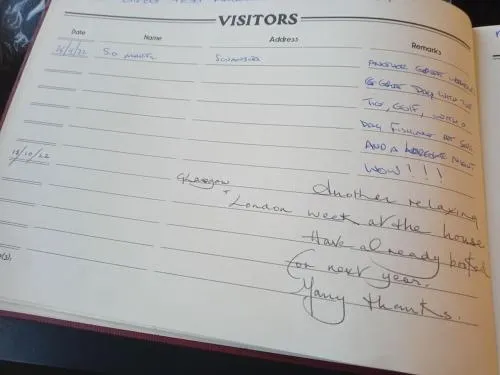 VISITORS
Date Name Address Remarks
SWANSEA
ANOTHER GREAT
GREAT DAY WITH THE
GOLF, WITH A
DAY FISHING AT SEA
AND A NIGHT
WOW!!!
18/10/22
Glasgow
+ London
Another relaxing
week at the house
Have already booked
for next year.
Many thanks.